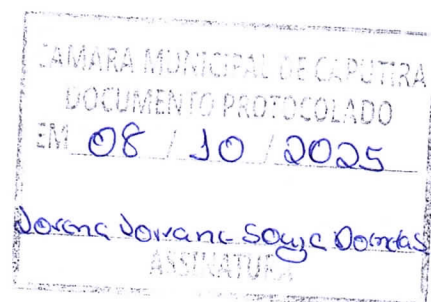 CAMARA MUNICIPAL DE CAPUTIRA
DOCUMENTO PROTOCOLADO
EM 08 / 10 / 2025
Souza Dornelas
ASSINATURA